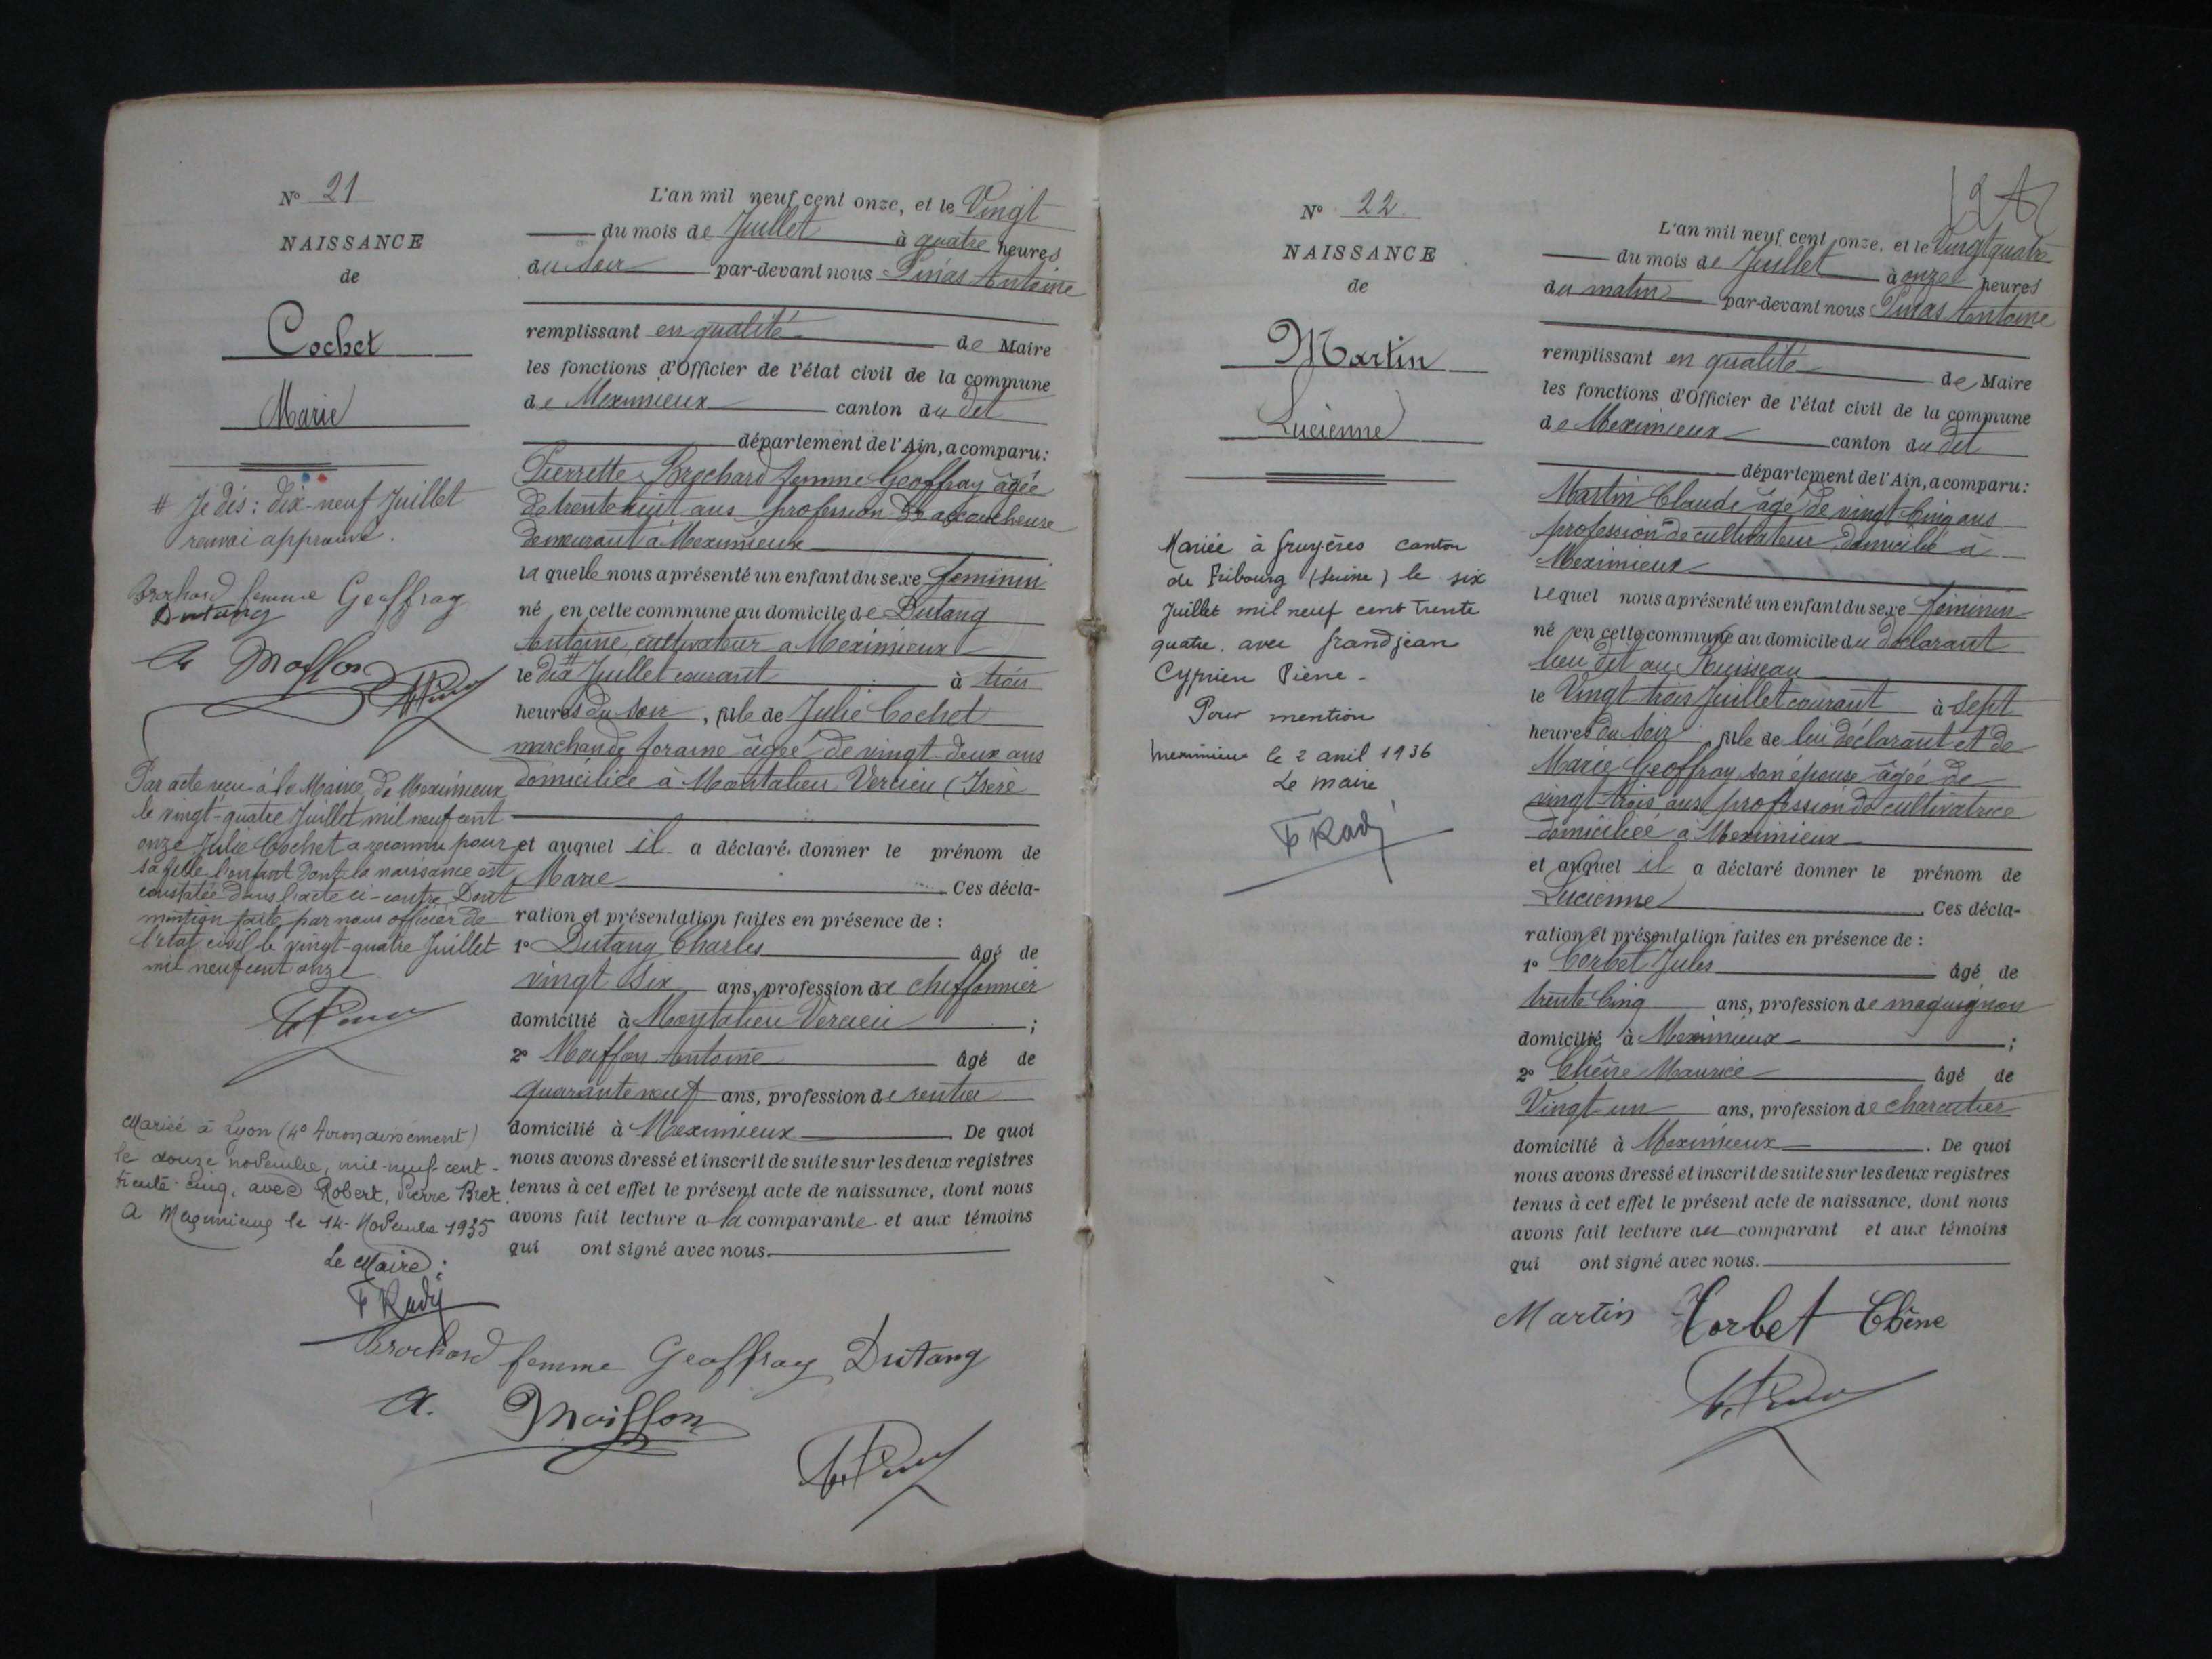 N° 21
NAISSANCE
de
Cochet
Marie
# Je dis : dix-neuf Juillet
renvoi approuvé.
Brochard femme Geoffray
Dutang
A Moiffon
Par acte reçu à la Mairie de Meximieux
le vingt-quatre Juillet mil neuf cent
onze Julie Cochet a reconnu pour
sa fille l'enfant dont la naissance est
constatée dans l'acte ci-contre. Dont
mention faite par nous officier de
l'état civil le vingt-quatre Juillet
mil neuf cent onze
Mariée à Lyon (4e Arrondissement)
le douze novembre, mil-neuf-cent-
trente-cinq, avec Robert, Pierre Bret.
A Meximieux le 14 Novembre 1935
Le Maire :
L'an mil neuf cent onze, et le Vingt
du mois de Juillet à quatre heures
du soir par-devant nous Antoine
remplissant en qualité de Maire
les fonctions d'Officier de l'état civil de la commune
de Meximieux canton du dit
département de l'Ain, a comparu :
Pierrette Brochard femme Geoffray âgée
de trente huit ans profession de accoucheuse
demeurant à Meximieux
laquelle nous a présenté un enfant du sexe féminin
né en cette commune au domicile de Dutang
Antoine, cultivateur a Meximieux
le dix # Juillet courant à trois
heures du soir, fille de Julie Cochet
marchande foraine âgée de vingt-deux ans
domiciliée à Montalieu Vercieu (Isère
et auquel il a déclaré donner le prénom de
Marie Ces décla-
ration et présentation faites en présence de :
1° Dutang Charles âgé de
vingt six ans, profession de chiffonnier
domicilié à Montalieu Vercieu ;
2° Moiffon Antoine âgé de
quarante neuf ans, profession de rentier
domicilié à Meximieux. De quoi
nous avons dressé et inscrit de suite sur les deux registres
tenus à cet effet le présent acte de naissance, dont nous
avons fait lecture a la comparante et aux témoins
qui ont signé avec nous.
Brochard femme Geoffray Dutang
A. Moiffon
N° 22
NAISSANCE
de
Martin
Lucienne
Mariée à Gruyères canton
de Fribourg (Suisse) le six
Juillet mil neuf cent trente
quatre. avec Grandjean
Cyprien Pierre -
Pour mention
Meximieux le 2 avril 1936
Le maire
L'an mil neuf cent onze, et le Vingt quatre
du mois de Juillet à onze heures
du matin par-devant nous Antoine
remplissant en qualité de Maire
les fonctions d'Officier de l'état civil de la commune
de Meximieux canton du dit
département de l'Ain, a comparu :
Martin Claude âgé de vingt cinq ans
profession de cultivateur, domicilié à
Meximieux
lequel nous a présenté un enfant du sexe féminin
né en cette commune au domicile du déclarant
lieu dit au Ruisseau
le Vingt trois Juillet courant à sept
heures du soir fille de lui déclarant et de
Marie Geoffray, son épouse âgée de
vingt-trois ans profession de cultivatrice
domiciliée à Meximieux
et auquel il a déclaré donner le prénom de
Lucienne. Ces décla-
ration et présentation faites en présence de :
1° Corbet Jules âgé de
trente cinq ans, profession de maquignon
domicilié à Meximieux ;
2° Chêne Maurice âgé de
Vingt-un ans, profession de charcutier
domicilié à Meximieux. De quoi
nous avons dressé et inscrit de suite sur les deux registres
tenus à cet effet le présent acte de naissance, dont nous
avons fait lecture au comparant et aux témoins
qui ont signé avec nous.
Martin Corbet Chêne